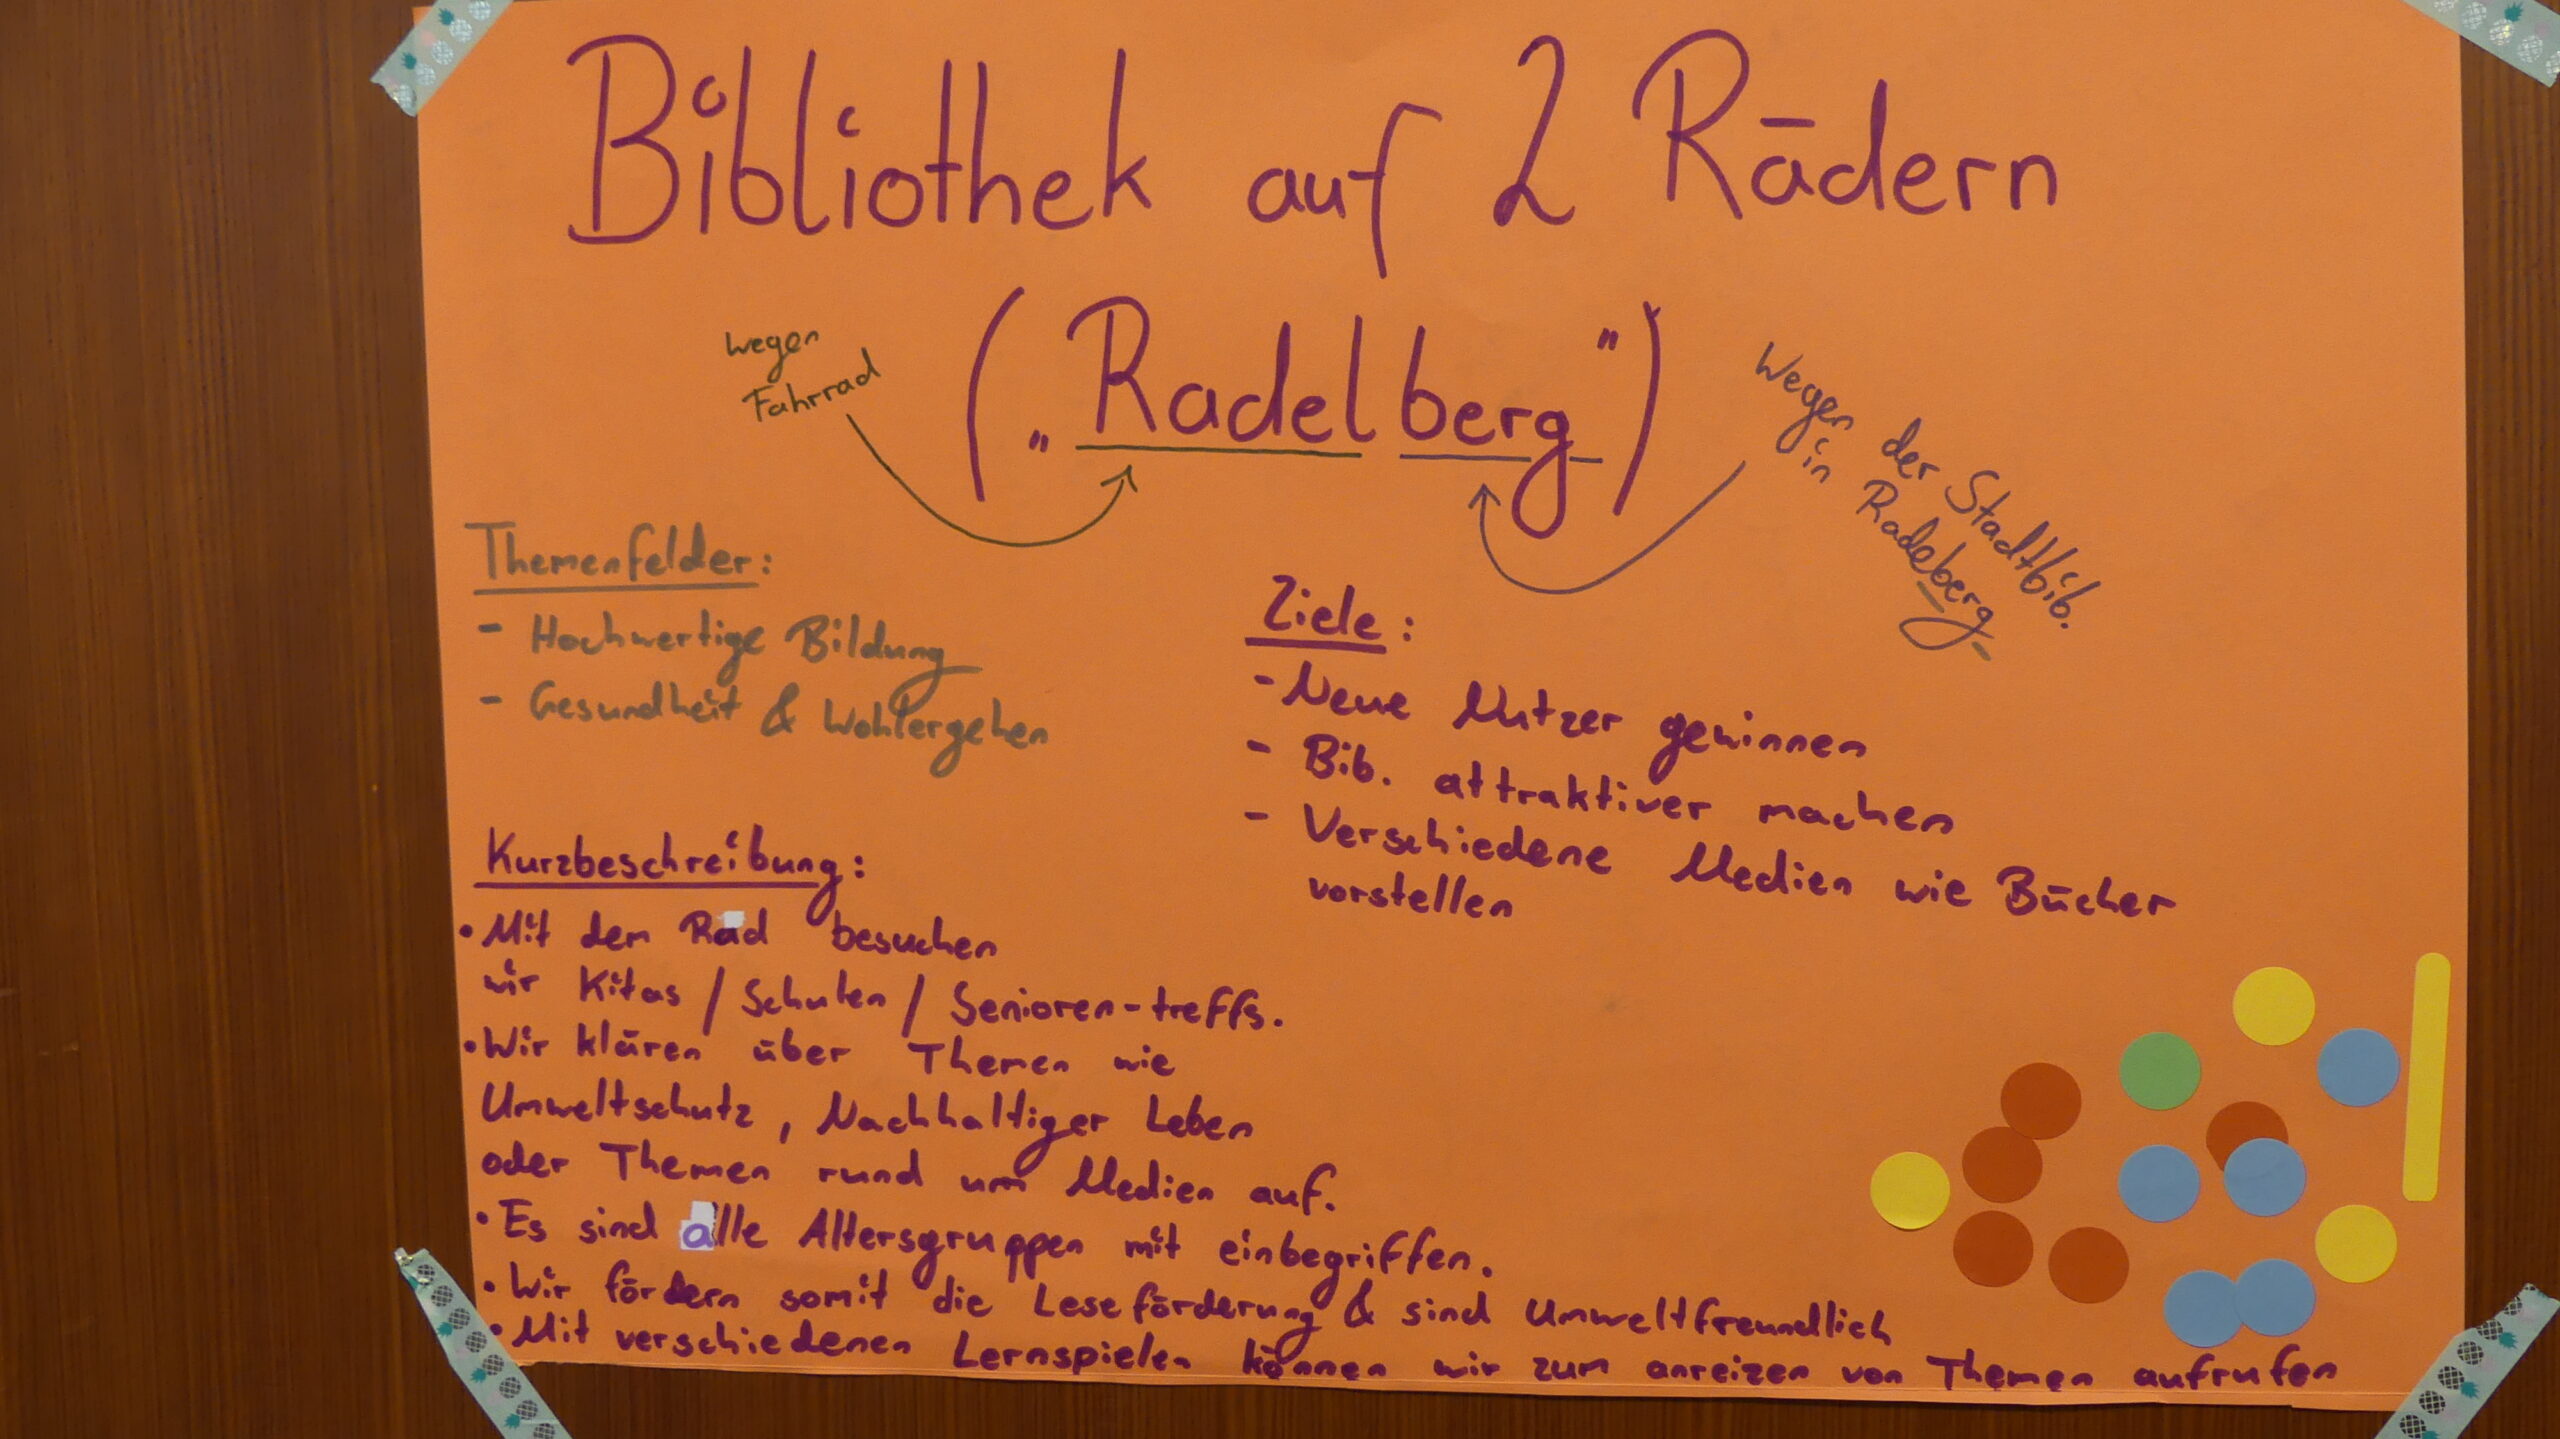 Bibliothek auf 2 Rädern
(„Radelberg")
wegen
Fahrrad
Wegen der Stadtbib.
in Radeberg
Themenfelder:
- Hochwertige Bildung
- Gesundheit & Wohlergehen
Ziele:
- Neue Nutzer gewinnen
- Bib. attraktiver machen
- Verschiedene Medien wie Bücher
vorstellen
Kurzbeschreibung:
• Mit dem Rad besuchen
wir Kitas / Schulen / Senioren-treffs.
• Wir klären über Themen wie
Umweltschutz, Nachhaltiger Leben
oder Themen rund um Medien auf.
• Es sind alle Altersgruppen mit einbegriffen.
• Wir fördern somit die Leseförderung & sind Umweltfreundlich
• Mit verschiedenen Lernspielen können wir zum anreizen von Themen aufrufen